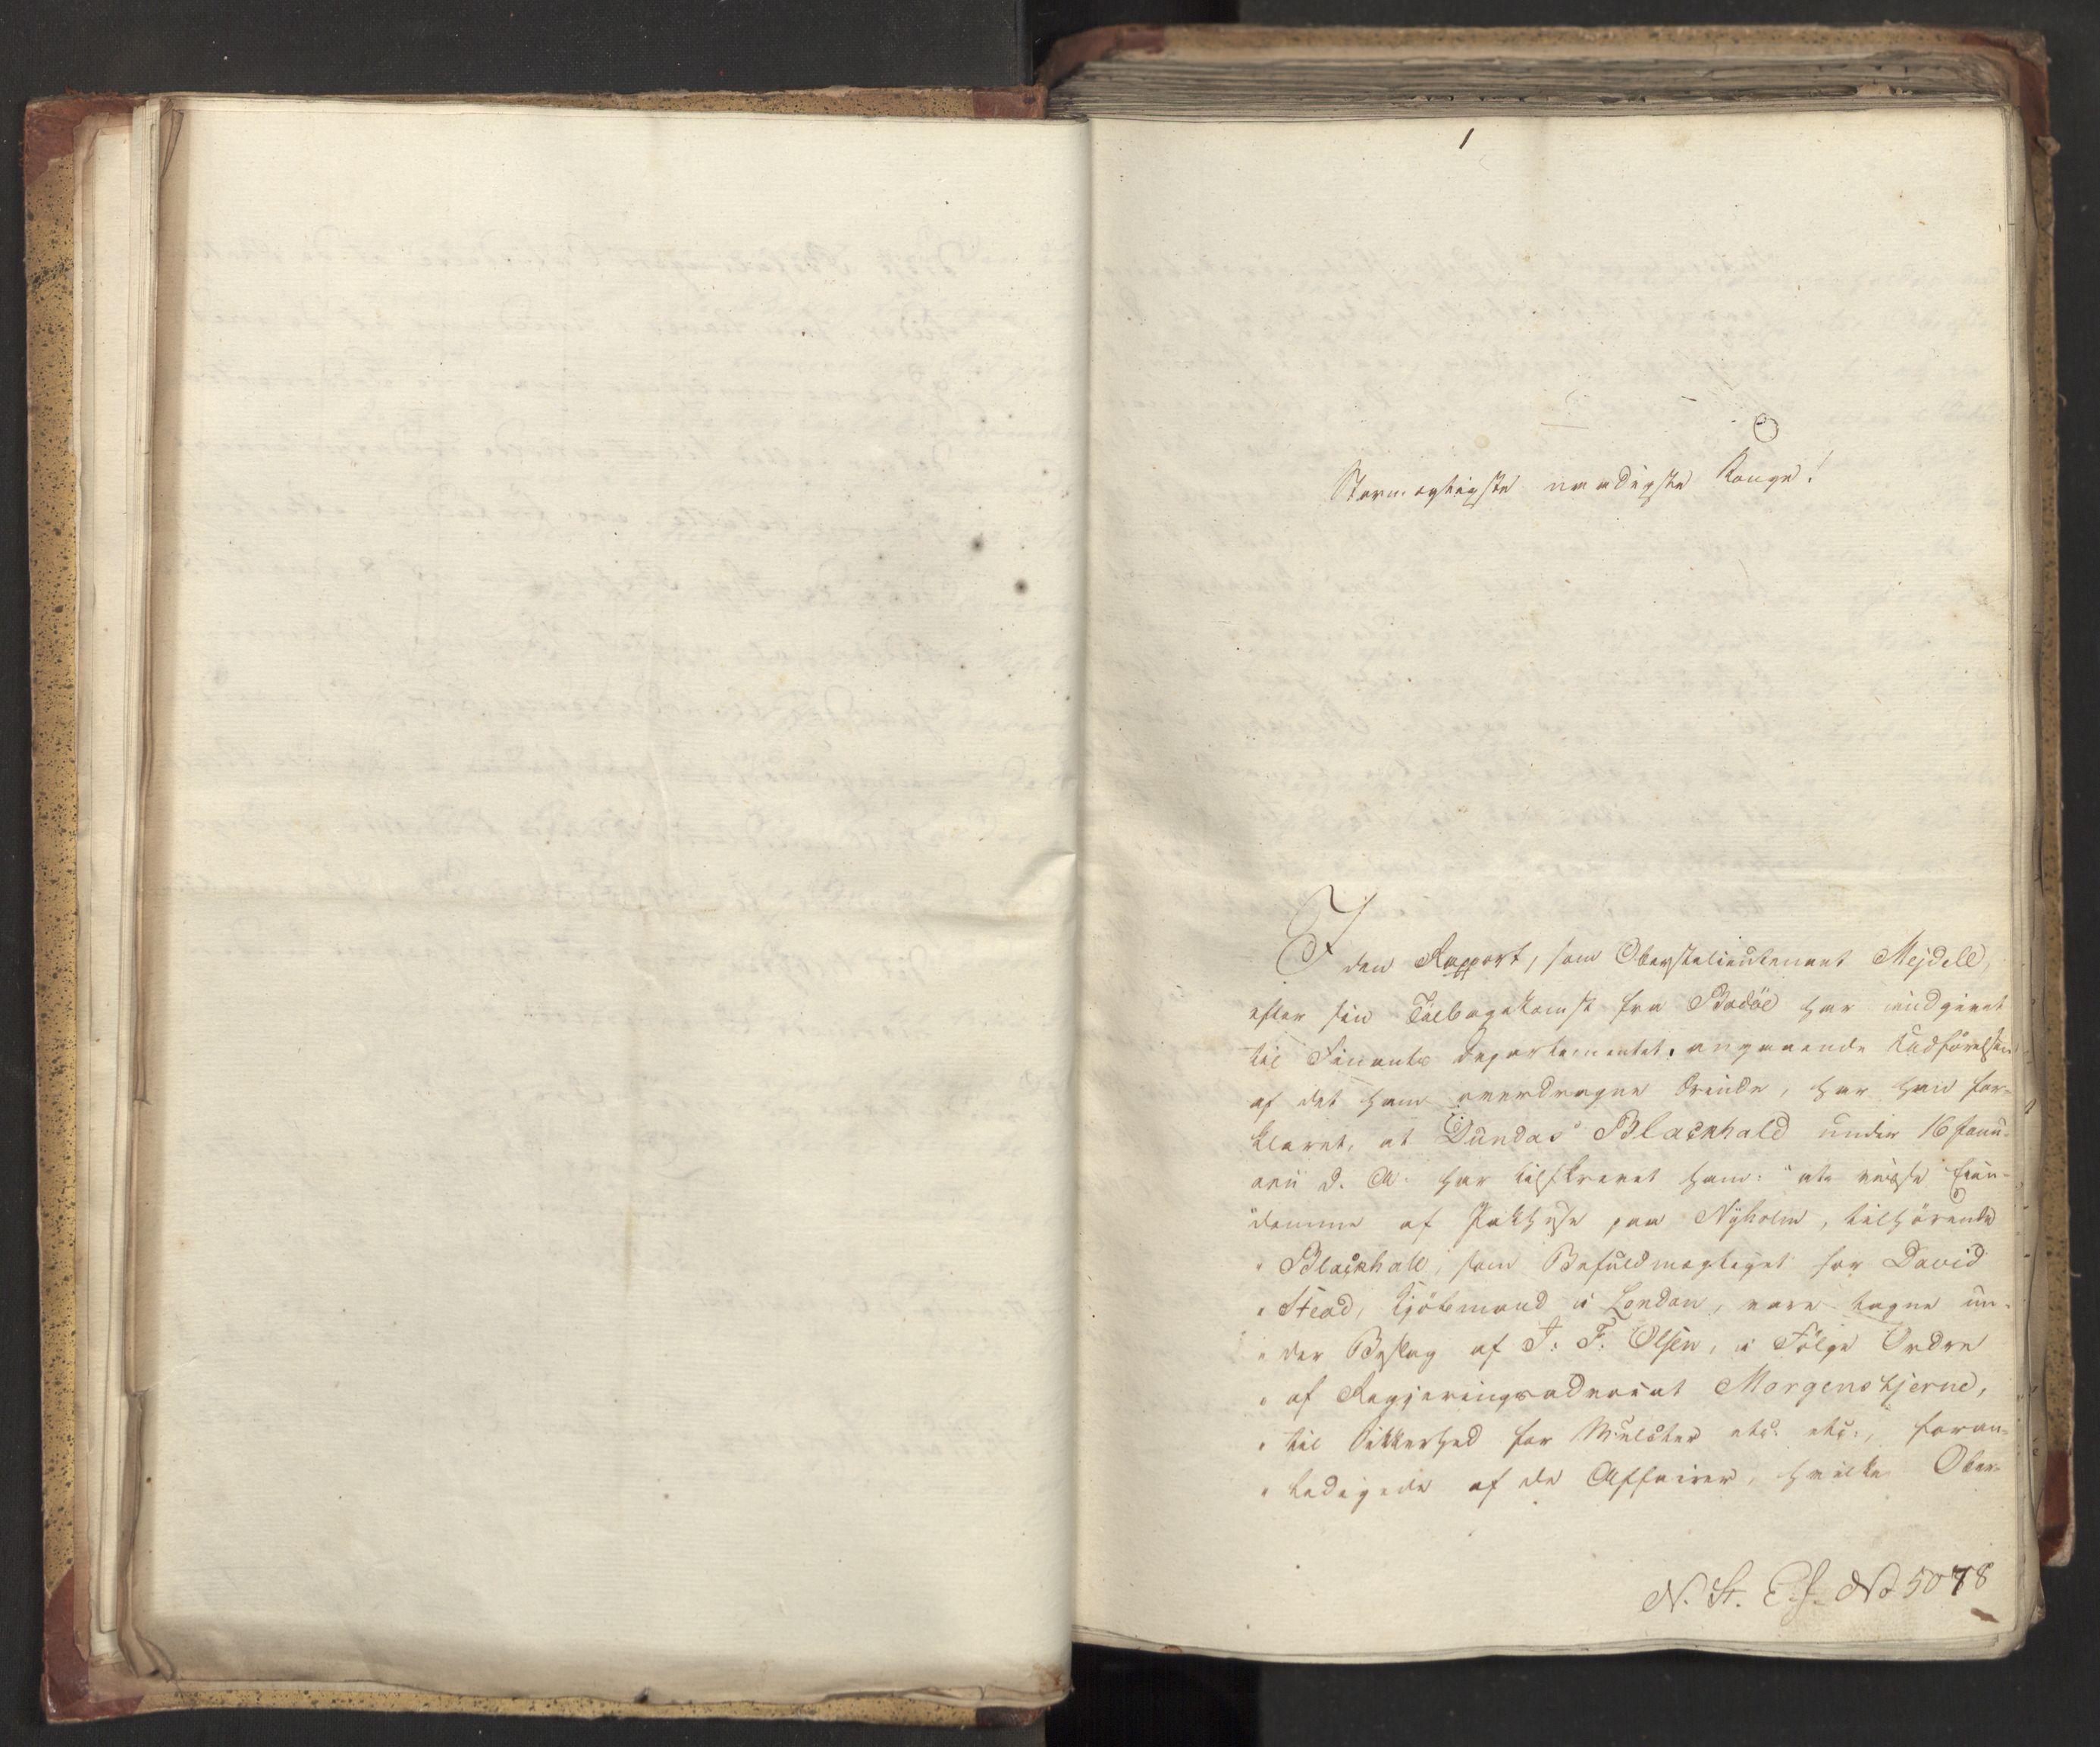 1
Stormægtigste naadigste Konge!
I den Rapport, som Oberstelieutenant Mejdell,
efter sin Tilbagekomst fra Bodöe har indgivet
til Finants departementet, angaaende Udförelsen
af det ham overdragne Ærinde, har han for-
klaret, at "Dundas" Blackhald under 16 Janu-
arii d. A. har tilskrevet ham: "at visse Eien-
"domme af Pakhuse paa Nyholm, tilhörende
"Blackhall, som Befuldmægtiget for David
"Stead, Kjöbmand i London, vare tagne un-
"der Beslag af J: F: Olsen, i Fölge Ordre
"af Regjeringsadvocat Morgenstjerne,
"til Sikkerhed for Mulcter etc. etc., foran-
"ledigede af de Affairer, hvilke Ober-
N. St. E. J. No 5078